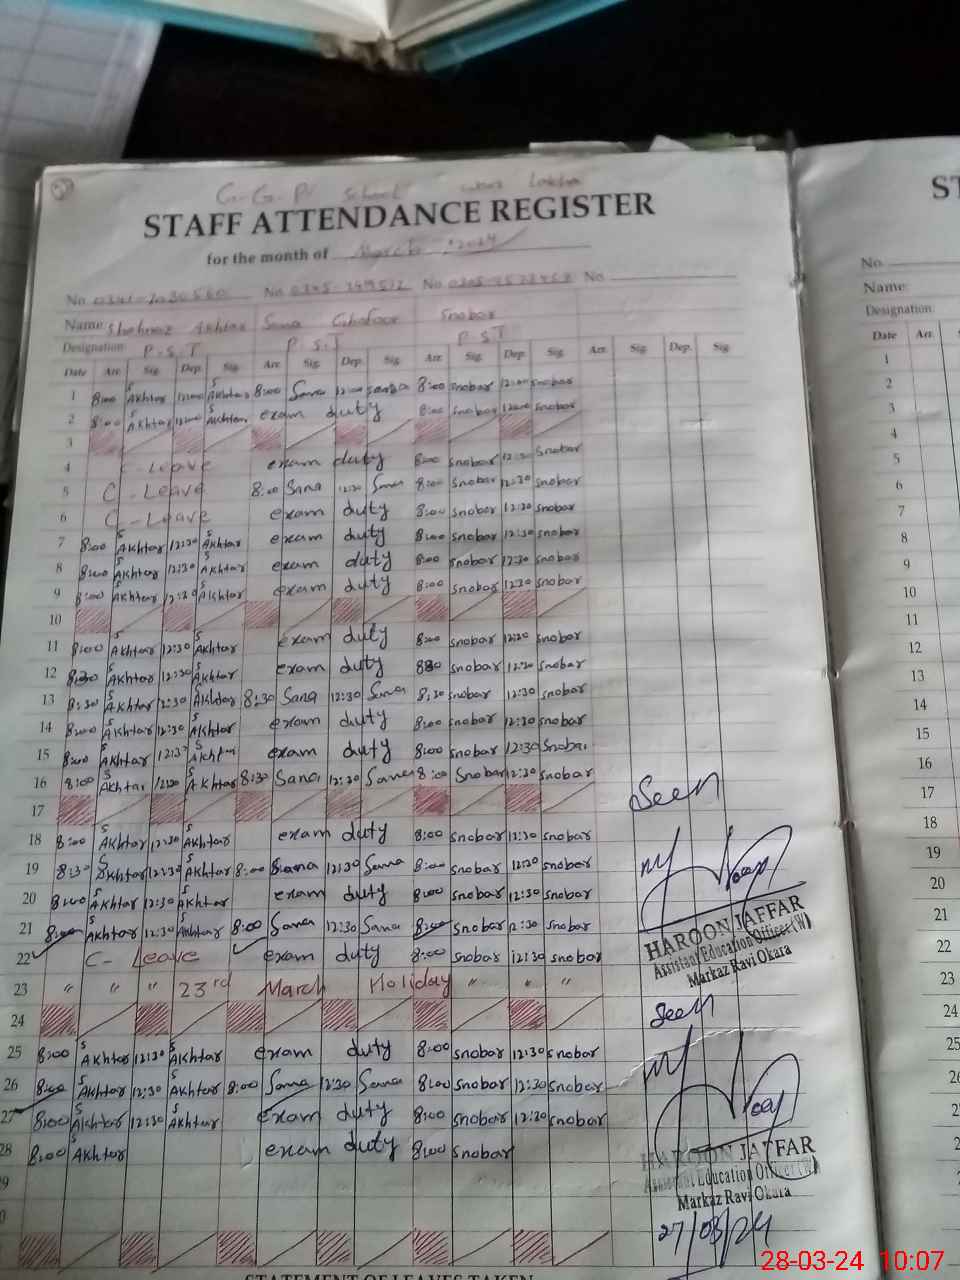 G.G.P/ School Lakha
STAFF ATTENDANCE REGISTER
for the month of March 2024
No. No. No. No.
Name Shehnaz Akhtar Sana Ghafoor Snobar
Designation P.S.T P.S.T P.S.T
Date Arr. Sig. Dep. Sig. Arr. Sig. Dep. Sig. Arr. Sig. Dep. Sig. Arr. Sig. Dep. Sig.
1 8:00 S Akhtar 12:00 S Akhtar 8:00 Sana 12:00 Sana 8:00 snobar 12:00 snobar
2 8:00 S Akhtar 12:00 S Akhtar exam duty 8:00 snobar 12:00 snobar
3
4 C-Leave exam duty 8:00 snobar 12:30 snobar
5 C-Leave 8:00 Sana 12:30 Sana 8:00 snobar 12:30 snobar
6 C-Leave exam duty 8:00 snobar 12:30 snobar
7 8:00 S Akhtar 12:30 S Akhtar exam duty 8:00 snobar 12:30 snobar
8 8:00 S Akhtar 12:30 S Akhtar exam duty 8:00 snobar 12:30 snobar
9 8:00 S Akhtar 12:30 S Akhtar exam duty 8:00 snobar 12:30 snobar
10
11 8:00 S Akhtar 12:30 S Akhtar exam duty 8:00 snobar 12:30 snobar
12 8:30 S Akhtar 12:30 S Akhtar exam duty snobar 12:30 snobar
13 8:30 S Akhtar 12:30 S Akhtar 8:30 Sana 12:30 Sana 8:30 snobar 12:30 snobar
14 8:00 S Akhtar 12:30 S Akhtar exam duty 8:00 snobar 12:30 snobar
15 8:00 S Akhtar 12:30 S Akhtar exam duty 8:00 snobar 12:30 snobar
16 8:00 S Akhtar 12:30 S Akhtar 8:30 Sana 12:30 Sana 8:00 Snobar 12:30 snobar
17
Seen
18 8:00 S Akhtar 12:30 S Akhtar exam duty 8:00 snobar 12:30 snobar
19 8:30 S Akhtar 12:30 S Akhtar 8:00 Sana 12:30 Sana 8:00 snobar 12:30 snobar
20 8:00 S Akhtar 12:30 S Akhtar exam duty 8:00 snobar 12:30 snobar
21 8:00 S Akhtar 12:30 S Akhtar 8:00 Sana 12:30 Sana 8:00 snobar 12:30 snobar
HAROON JAFFAR
Assistant Education Officer (W)
Markaz Ravi Okara
22 C- Leave exam duty 8:00 snobar 12:30 snobar
23 " " " 23rd March Holiday " " "
24
Seen
25 8:00 S Akhtar 12:30 S Akhtar exam duty 8:00 snobar 12:30 snobar
26 8:00 S Akhtar 12:30 S Akhtar 8:00 Sana 12:30 Sana 8:00 snobar 12:30 snobar
27 8:00 S Akhtar 12:30 S Akhtar exam duty 8:00 snobar 12:30 snobar
28 8:00 S Akhtar exam duty 8:00 snobar
HAROON JAFFAR
Assistant Education Officer (W)
Markaz Ravi Okara
27/03/24
9
0
STATEMENT OF LEAVES TAKEN
ST
No.
Name:
Designation
Date Arr. Sig.
1
2
3
4
5
6
7
8
9
10
11
12
13
14
15
16
17
18
19
20
21
22
23
24
25
28-03-24 10:07